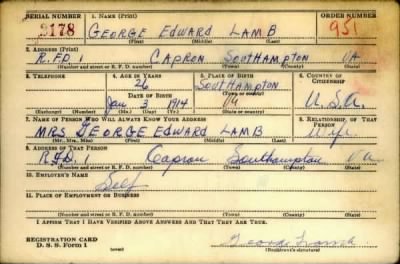 SERIAL NUMBER 1. NAME (Print) ORDER NUMBER
2178 GEORGE EDWARD LAMB 951
(First) (Middle) (Last)
2. ADDRESS (Print)
R.F.D. 1 CAPRON SOUTHAMPTON VA
(Number and street or R. F. D. number) (Town) (County) (State)
3. TELEPHONE 4. AGE IN YEARS 5. PLACE OF BIRTH 6. COUNTRY OF CITIZENSHIP
26 SOUTHAMPTON
DATE OF BIRTH (Town or county)
Jan 3 1914 VA U.S.A.
(Exchange) (Number) (Mo.) (Day) (Yr.) (State or country)
7. NAME OF PERSON WHO WILL ALWAYS KNOW YOUR ADDRESS 8. RELATIONSHIP OF THAT PERSON
MRS GEORGE EDWARD LAMB Wife
(Mr., Mrs., Miss) (First) (Middle) (Last)
9. ADDRESS OF THAT PERSON
R.F.D. 1 Capron Southampton Va
(Number and street or R. F. D. number) (Town) (County) (State)
10. EMPLOYER'S NAME
Self
11. PLACE OF EMPLOYMENT OR BUSINESS
(Number and street or R. F. D. number) (Town) (County) (State)
I AFFIRM THAT I HAVE VERIFIED ABOVE ANSWERS AND THAT THEY ARE TRUE.
REGISTRATION CARD
D. S. S. Form 1 (over) (Registrant's signature)